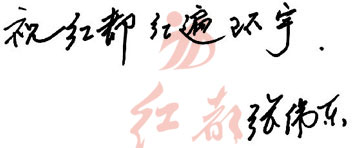 祝红都红遍环宇.
红都
张伟东